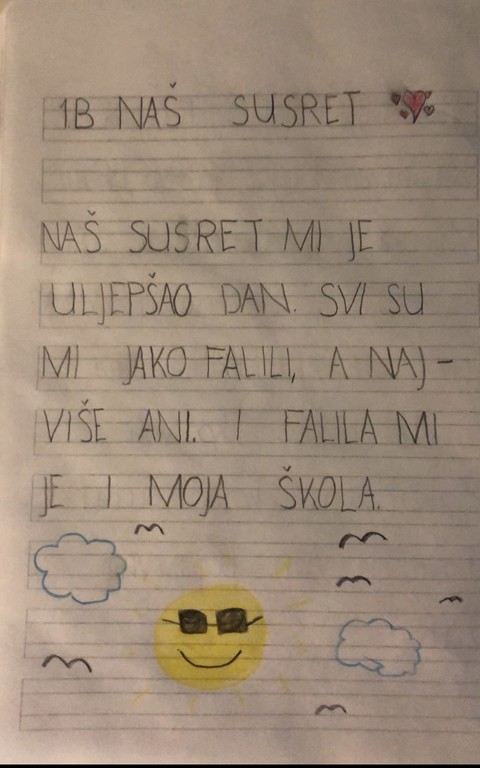 1B NAŠ SUSRET
NAŠ SUSRET MI JE
ULJEPŠAO DAN. SVI SU
MI JAKO FALILI, A NAJ-
VIŠE ANI. I FALILA MI
JE I MOJA ŠKOLA.